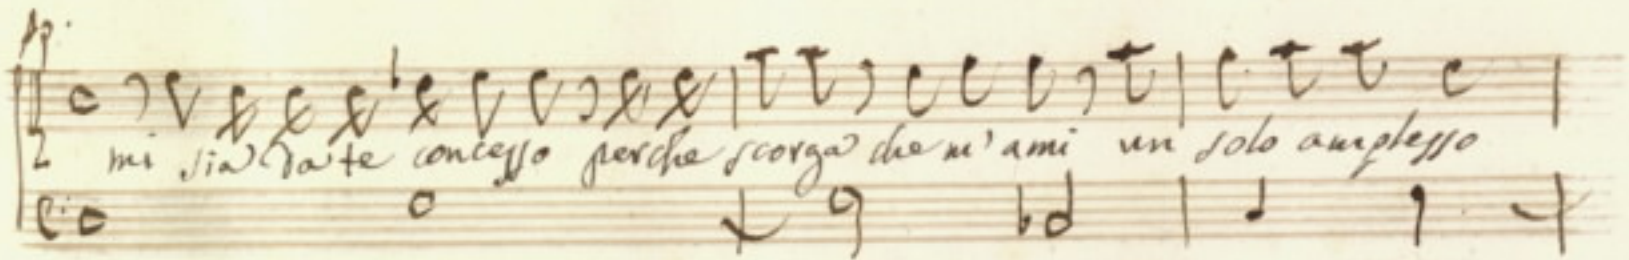 mi sia da te concesso perche scorga che m'ami un solo amplesso